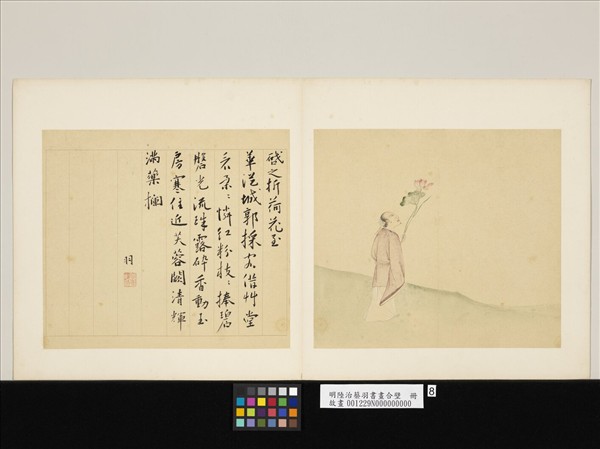 啟之折荷花至
華從城郭採借艸堂
看朵〻憐紅粉枝〻捧碧
盤光流珠露碎香動玉
房寒住近芙蓉闕清輝
滿藥欄
羽
明陸治蔡羽書畫合璧　冊
故畫001229N000000000
8